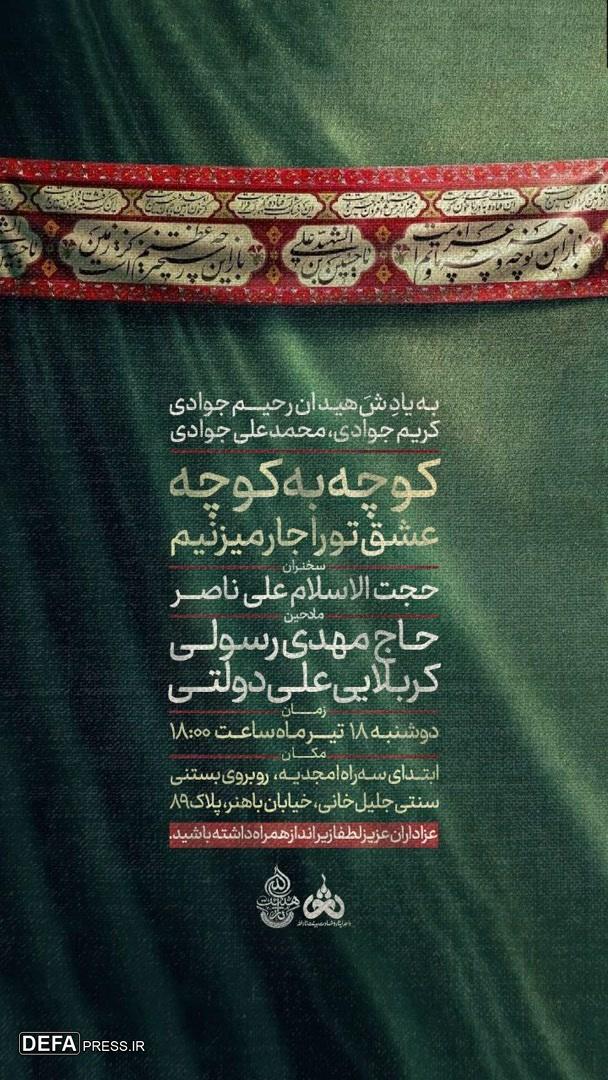 باز این چه شورش
باز این چه نوحه و چه عزا و چه ماتم است
الشهید
یا حسین بن علی
به یادِ شَهیدان رحیم جوادی
کریم جوادی، محمدعلی جوادی
کوچه به کوچه
عشق تو را جار میزنیم
سخنران
حجت الاسلام علی ناصر
مادحین
حاج مهدی رسولی
کربلایی علی دولتی
زمان
دوشنبه ۱۸ تیر ماه ساعت ۱۸:۰۰
مکان
ابتدای سه راه امجدیه، روبروی بستنی
سنتی جلیل خانی، خیابان باهنر، پلاک ۸۹
عزاداران عزیز لطفا زیرانداز همراه داشته باشید.
DEFA PRESS.IR